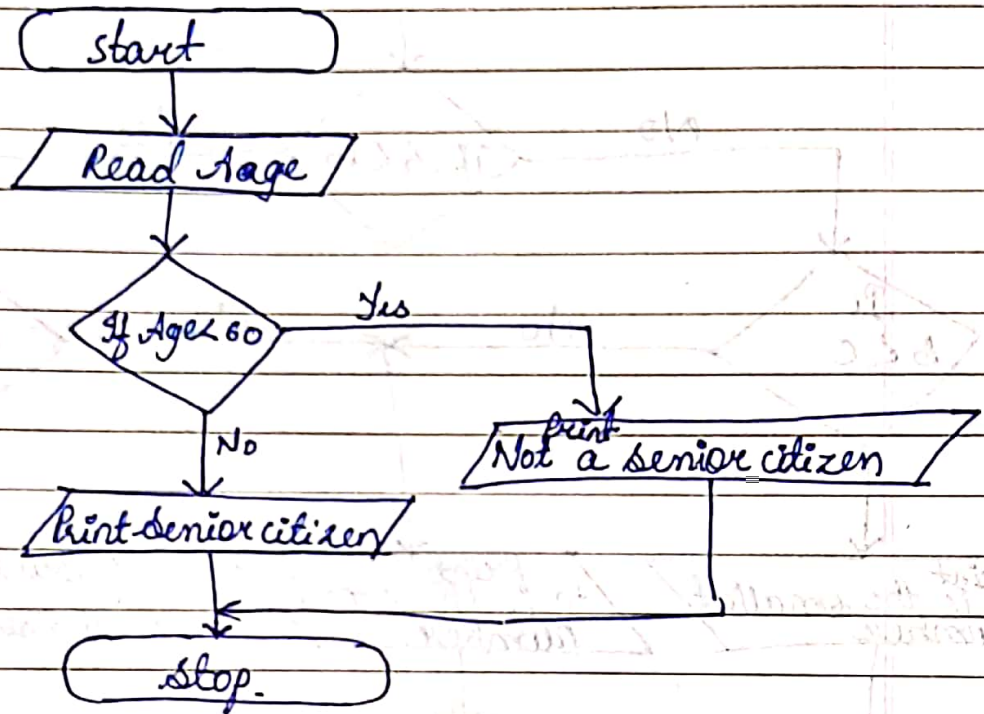 start
Read Aage
If Age<60
Yes
No
print
Not a senior citizen
Print senior citizen
stop.